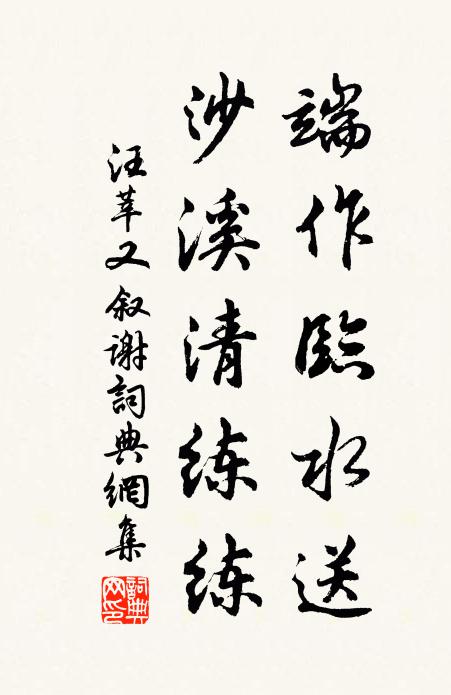 端作臨水送
沙溪清練練
汪莘又叙謝詞典網集
詞典
网印